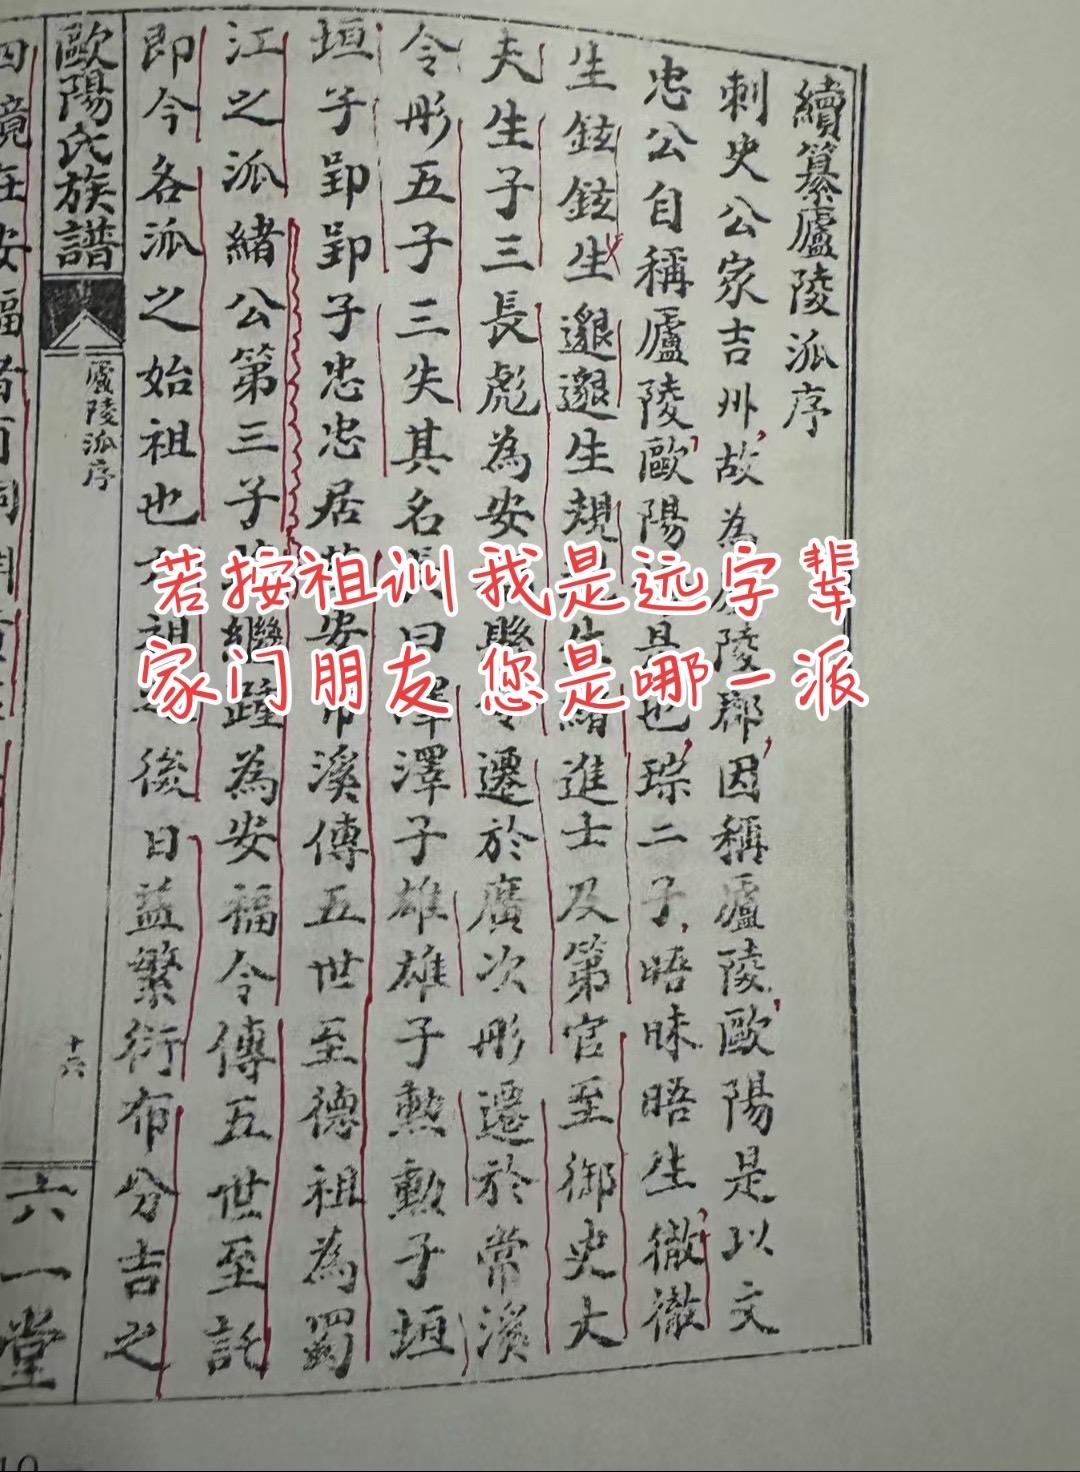 續纂廬陵派序
刺史公家吉州故為廬陵郡因稱廬陵歐陽是以文
忠公自稱廬陵歐陽也琮二子晤昧晤生徹徹
生鉉鉉生邈邈生規生緒進士及第官至御史大
夫生子三長彪為安縣令遷於廣次彤遷於常溪
令彤五子三失其名次曰澤澤子雄雄子勲勲子垣
垣子郢郢子忠忠居安常溪傳五世至德祖為蜀
江之派緒公第三子繼踵為安福令傳五世至託
即今各派之始祖也祖後日益繁衍布分吉之
歐陽氏族譜
廬陵派序
十六
六一堂
四境在安福者有祠
若按祖训我是远字辈
家门朋友您是哪一派